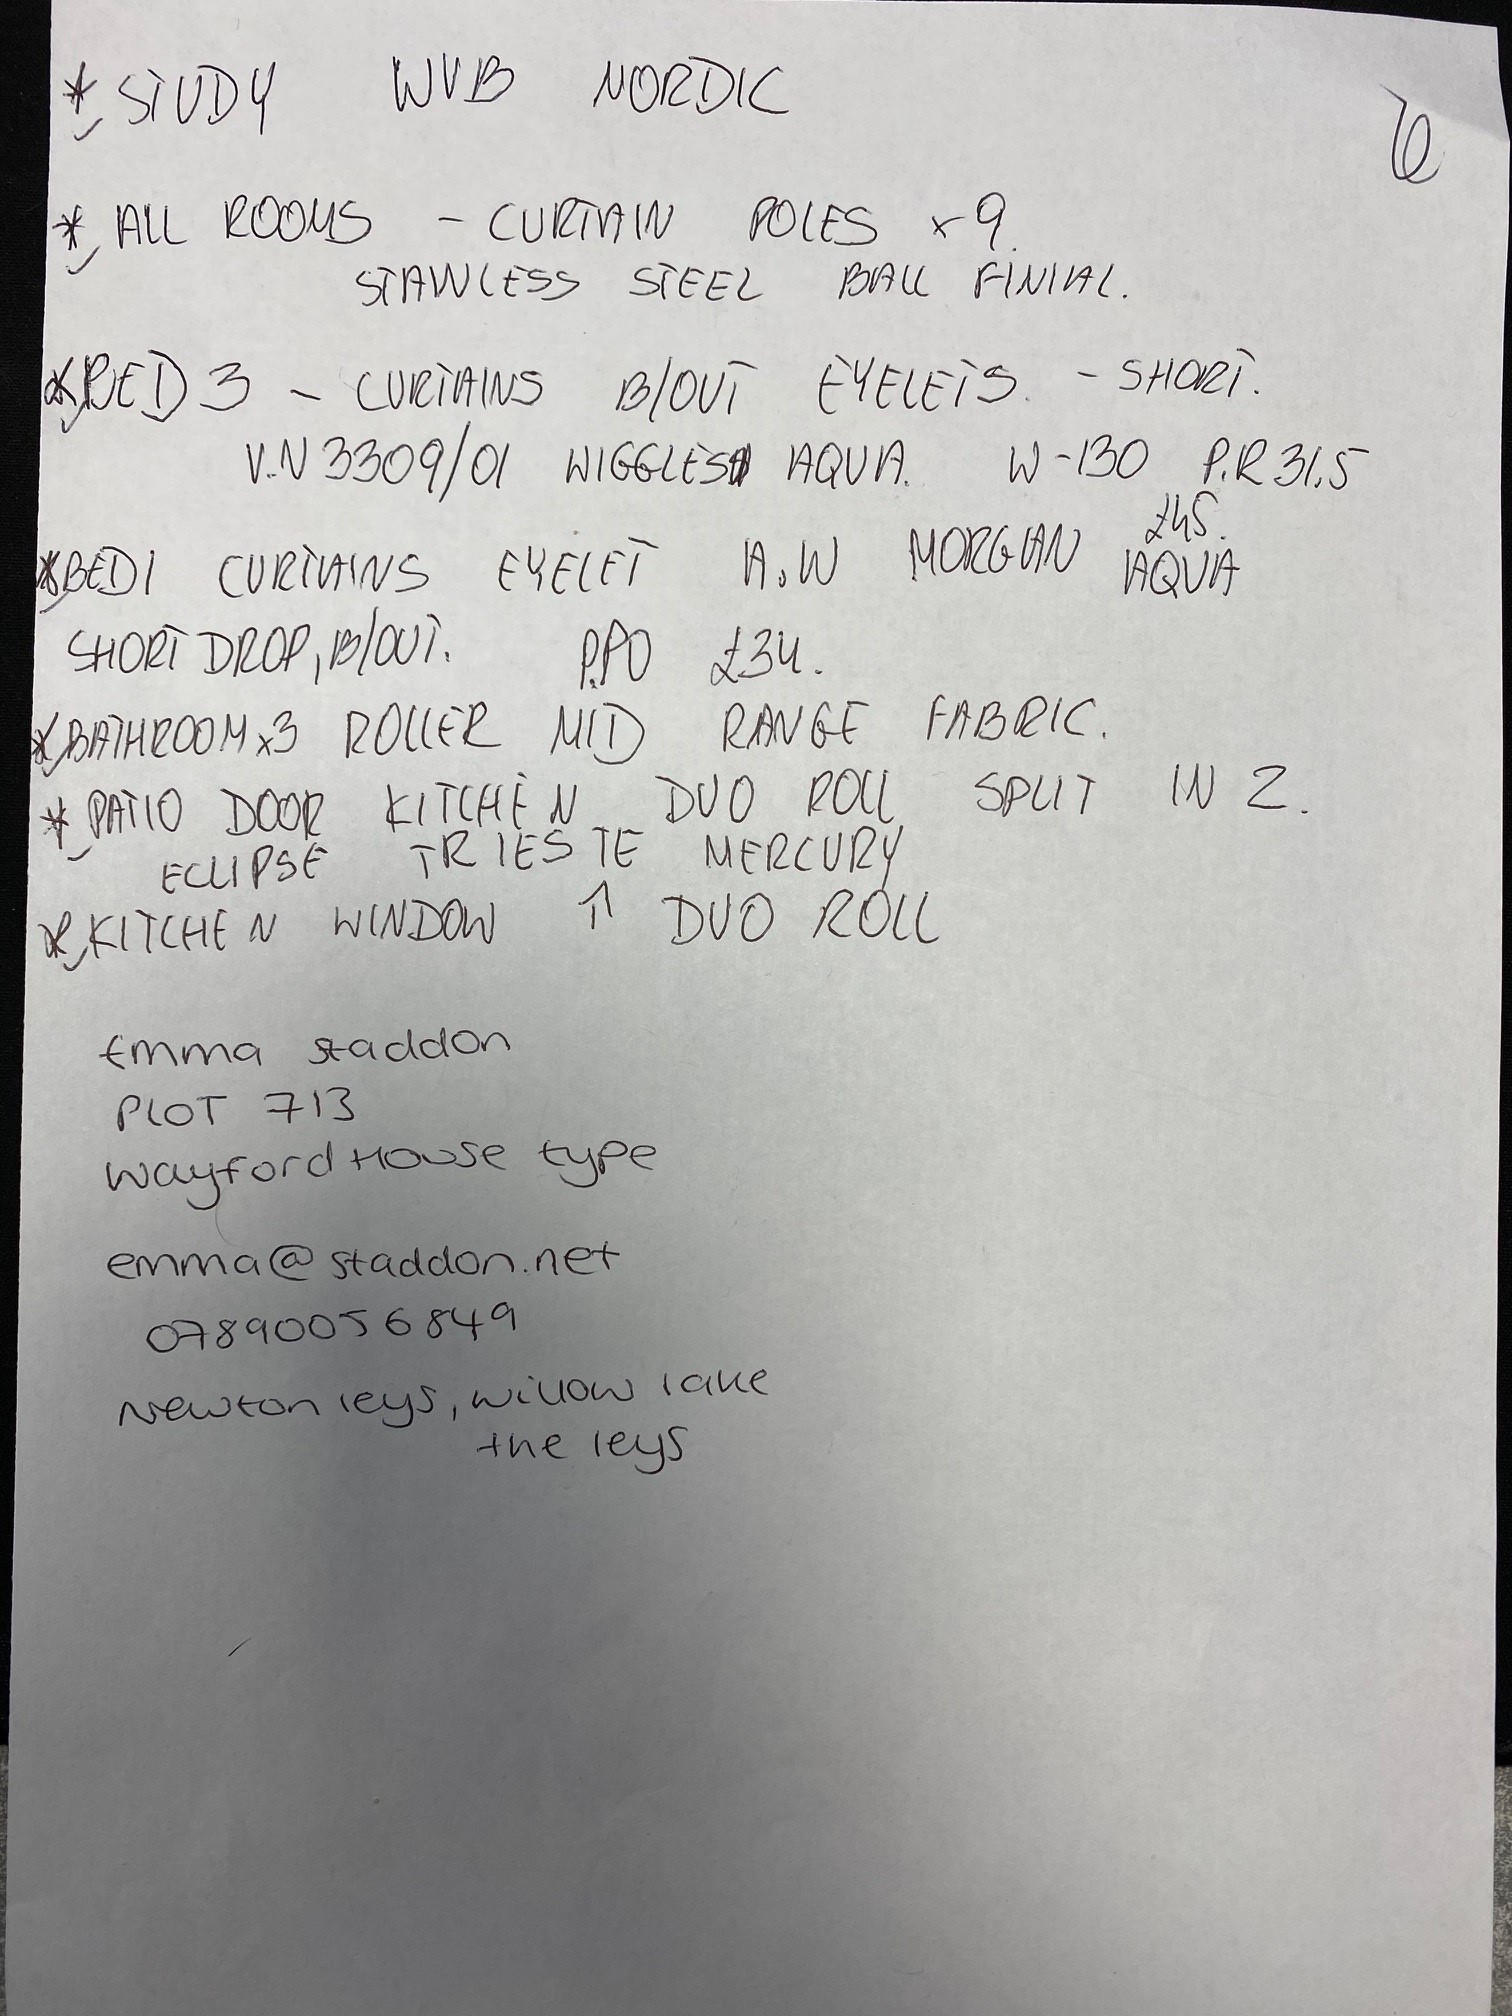 * STUDY WVB NORDIC
6
* ALL ROOMS - CURTAIN POLES x 9.
STAINLESS STEEL BALL FINIAL.
* BED 3 - CURTAINS B/OUT EYELETS. - SHORT.
V.N 3309/01 WIGGLES AQUA. W-130 P.R 31.5
£45.
* BED 1 CURTAINS EYELET A.W MORGAN AQUA
SHORT DROP, B/OUT. P.P0 £34.
* BATHROOM x3 ROLLER MID RANGE FABRIC.
* PATIO DOOR KITCHEN DUO ROLL SPLIT IN 2.
ECLIPSE TRIESTE MERCURY
* KITCHEN WINDOW ↑ DUO ROLL
Emma Staddon
PLOT 713
Wayford House type
emma@staddon.net
07890056849
Newton leys, willow lake
the leys